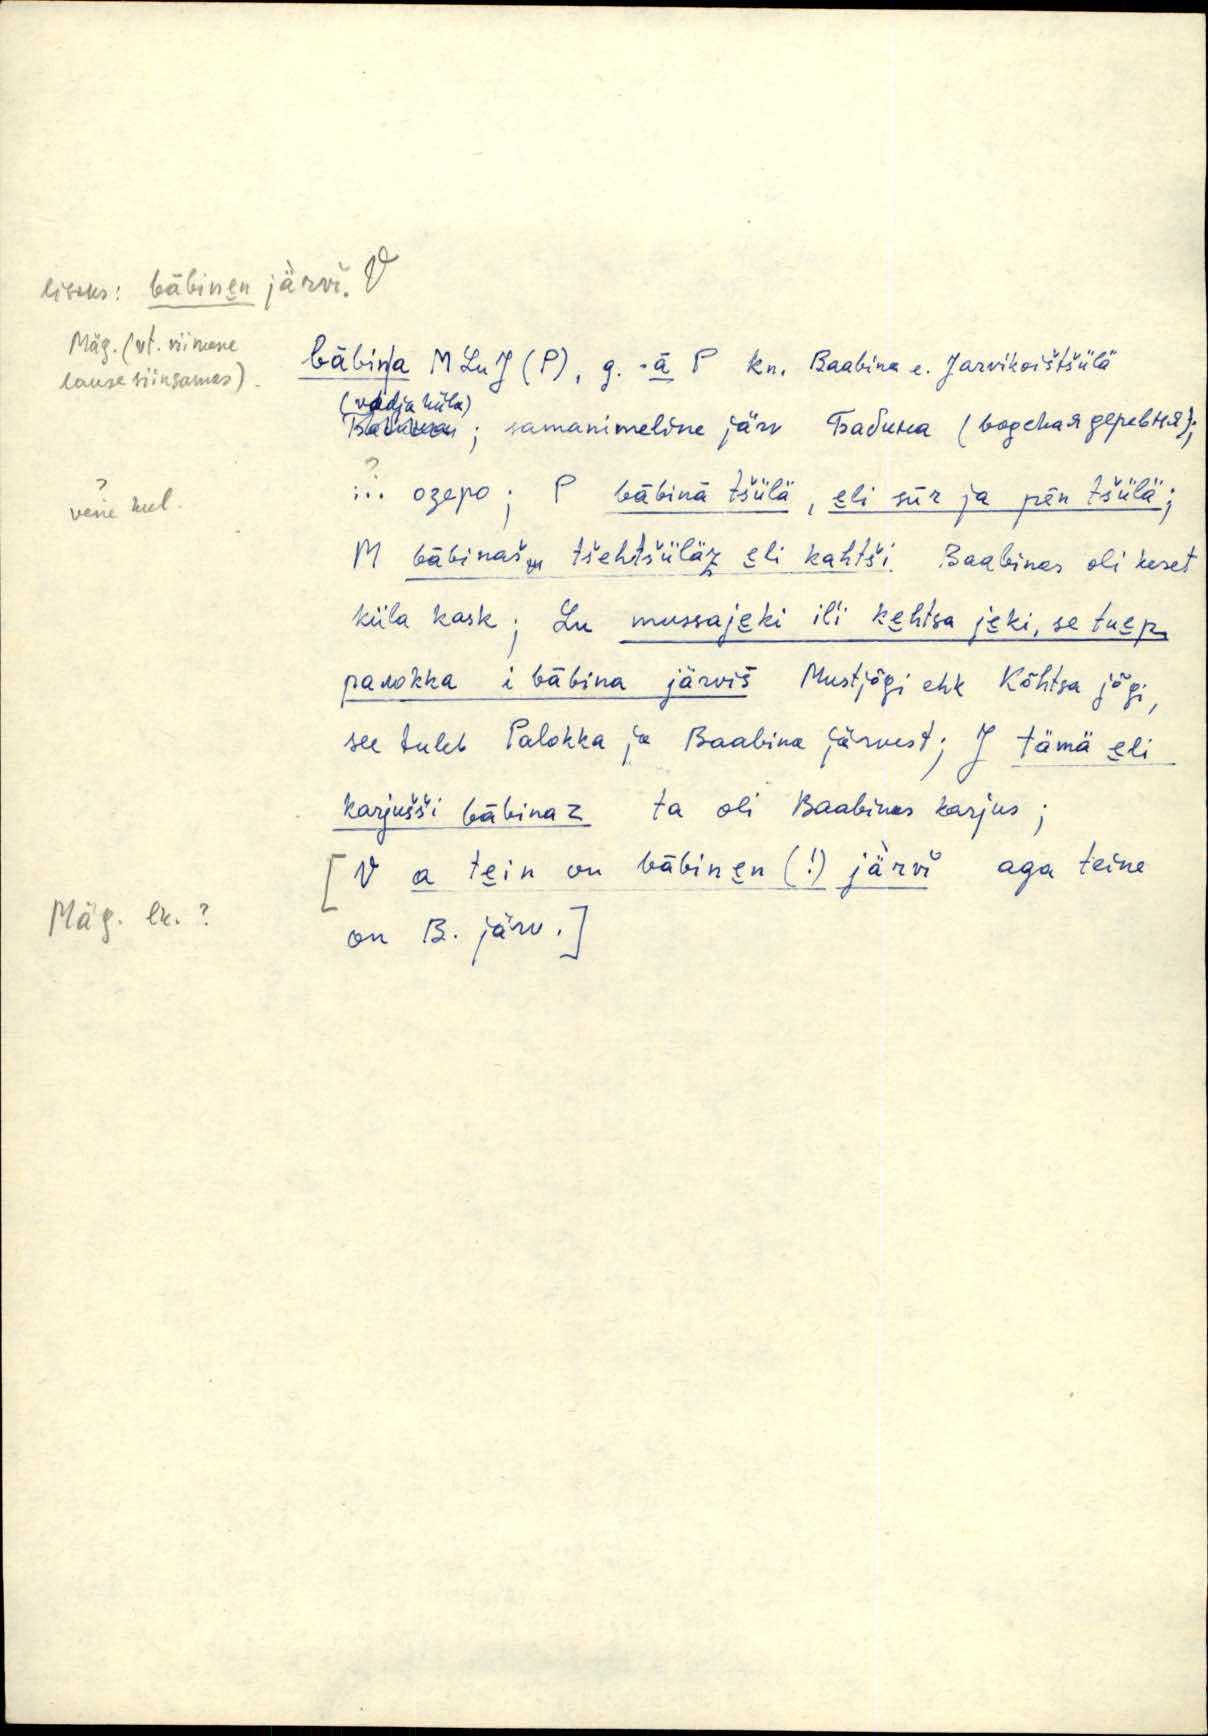 liseks: bābinen järvi. V
Mäg. (vt. viimane
lause siinsamas).
bābina M Lu J (P), g. -ā P kn. Baabina e. Jarvikoištšülä
(vadja küla)
; samanimeline järv Бабина (водская деревня);
?
... озеро; P bābinā tšülä, eli sūr ja pēn tšülä;
?
vene keel.
M bābinaš tšehtšüläz eli kahtši. Baabinas oli keset
küla kask; Lu mussajeki ili kehtsa jeki, se tuep
palokka i bābina järviš Mustjõgi ehk Kõhtsa jõgi,
see tuleb Palokka ja Baabina järvest; J tämä eli
karjušši bābinaz ta oli Baabinas karjus;
[V a tein on bābinen (!) järvi aga teine
Mäg. lk. ?
on B. järv.]